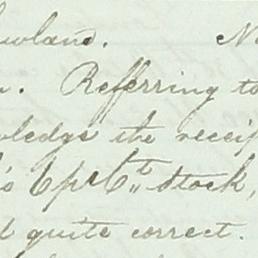 Newland. N
n. Referring to
wledge the receip
's 6 pr Ct. Stock,
d quite correct.